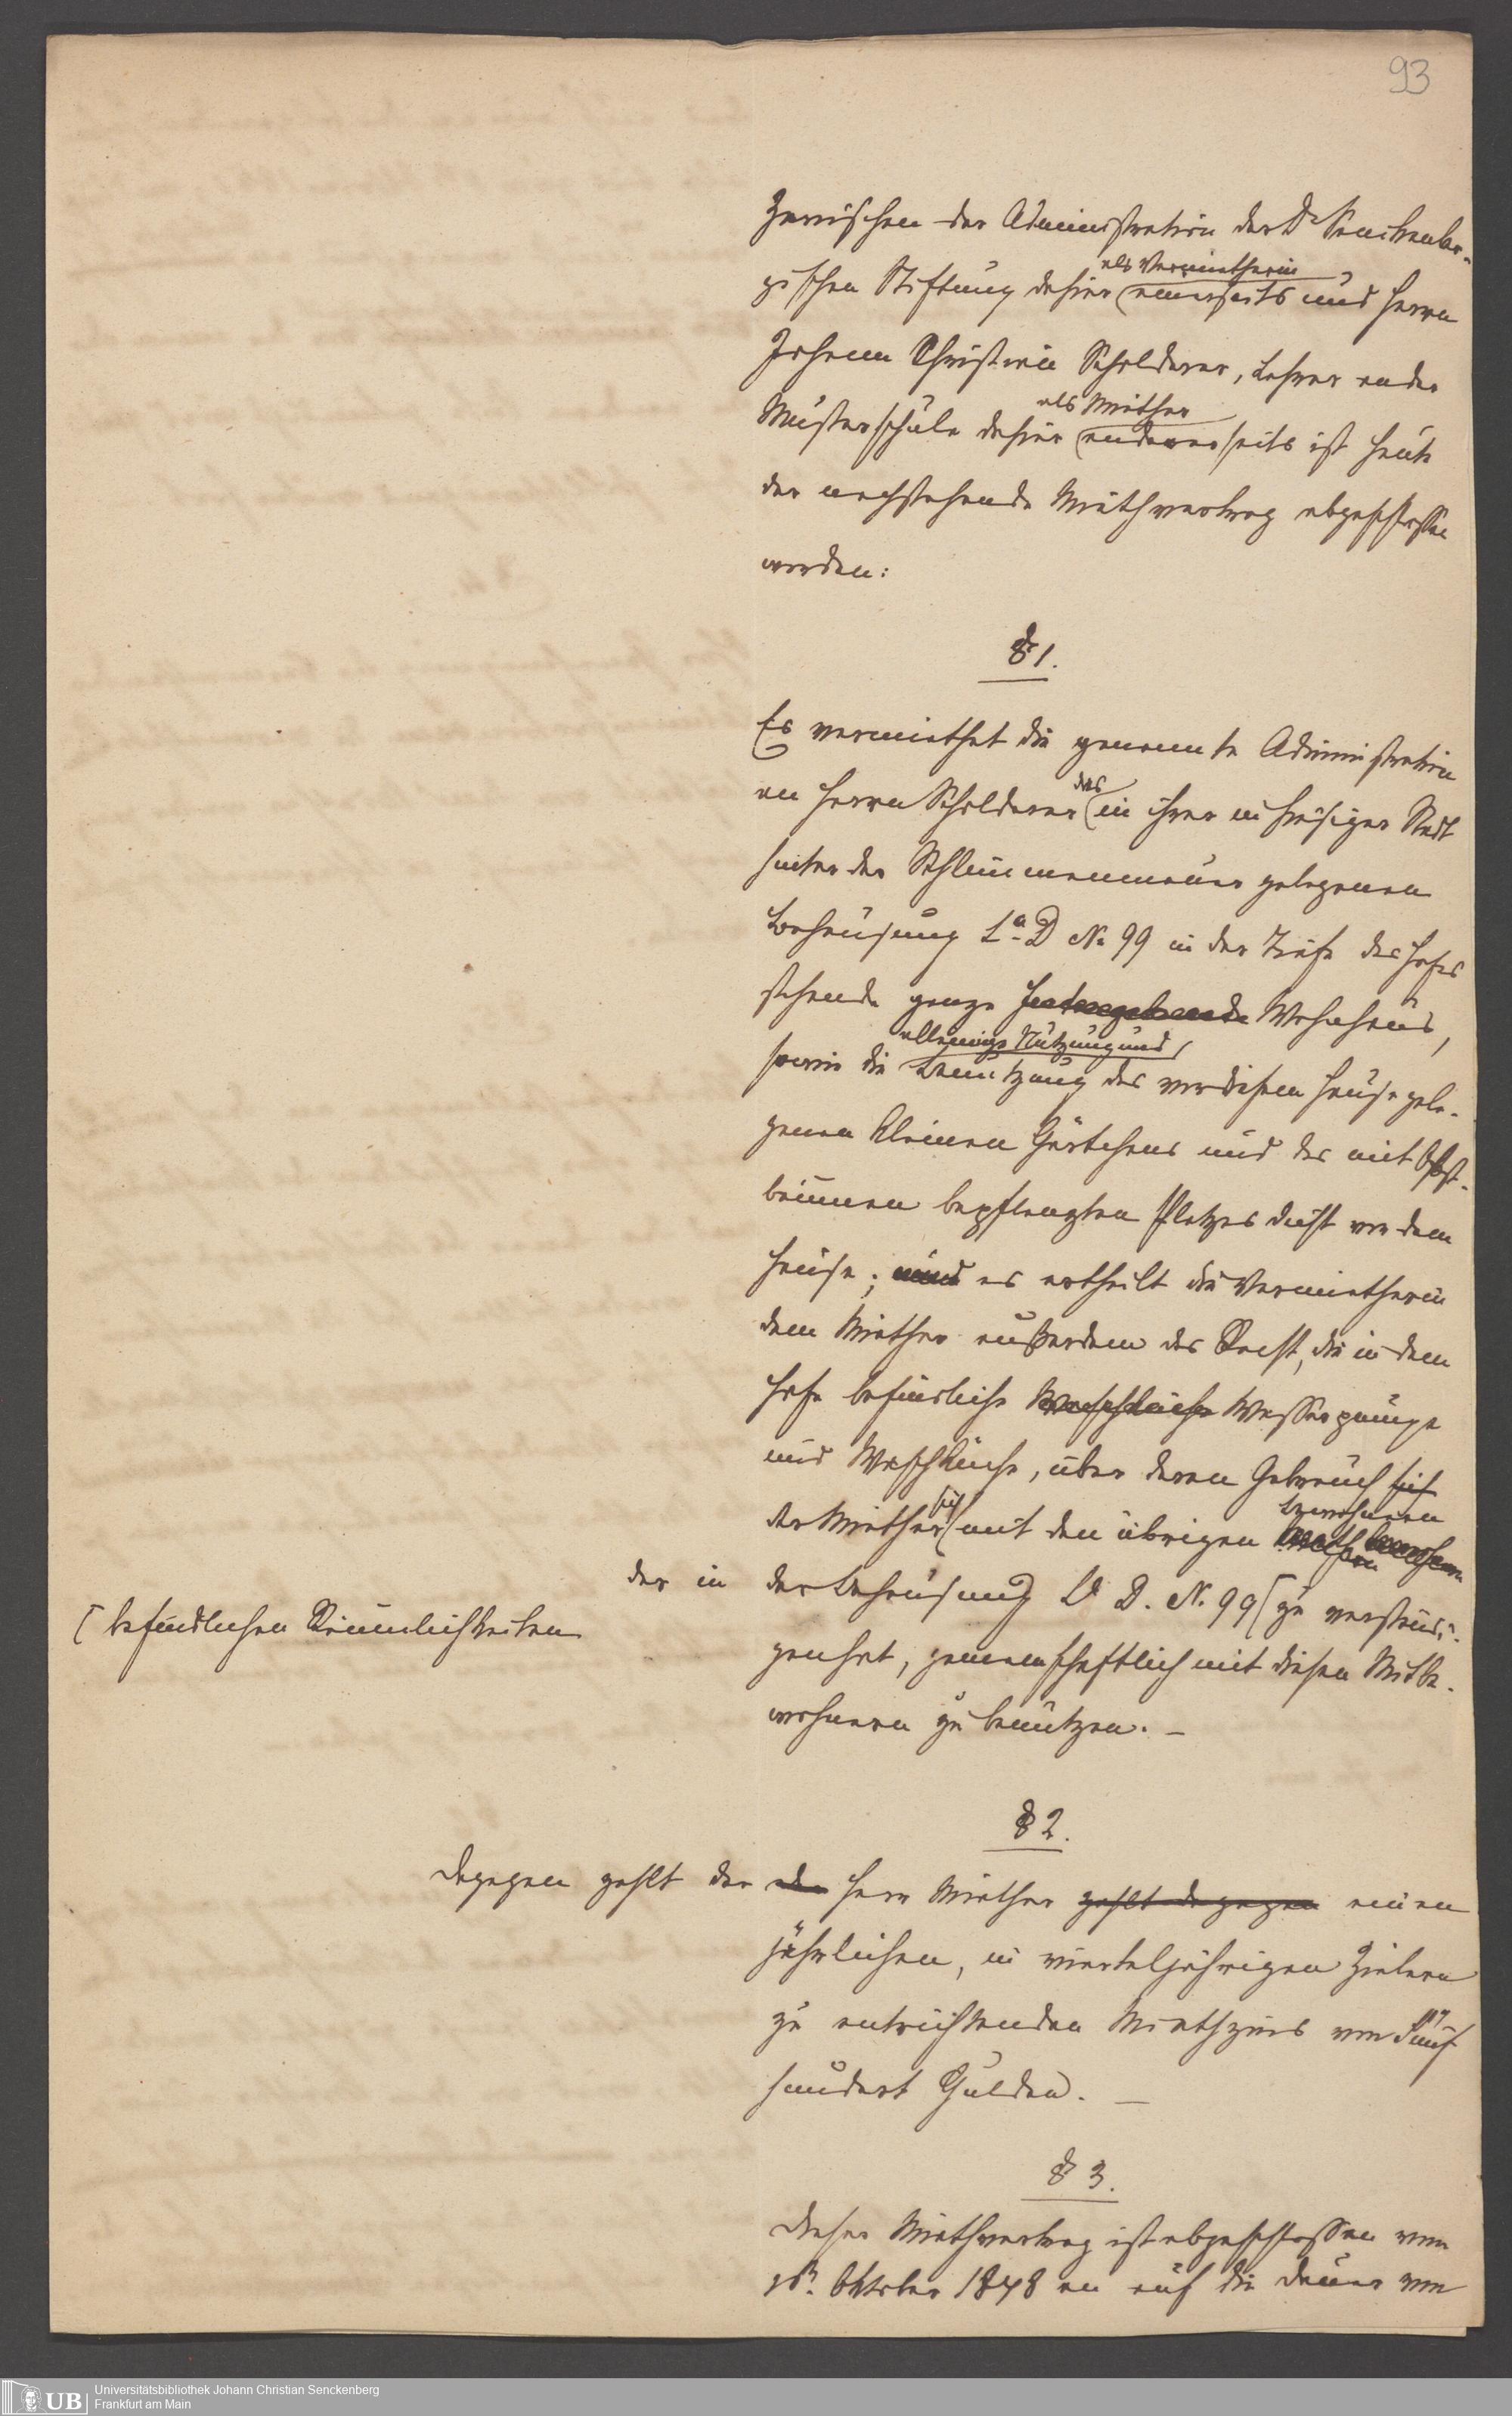 93
Zwischen der Administration der Dr Senckenber-
gischen Stiftung dahier als Vermietherin einerseits und Herrn
Johann Christian Scholderer, Lehrer an der
Musterschule dahier als Miether andererseits ist heute
der nachstehende Miethvertrag abgeschlossen
worden:
§ 1.
Es vermiethet die genannte Administration
an Herrn Scholderer das in ihrer in hiesiger Stadt
hinter der Schlimmenmauer gelegenen
Behausung La. D No 99 in der Tiefe des Hofes
stehende ganze Wohnhaus,
sowie die alleinige Nutzung und Benutzung des vor diesem Hause gele-
genen kleinen Gärtchens und des mit Obst-
bäumen bepflanzten Platzes dicht vor dem
Hause; und es ertheilt die Vermietherin
dem Miether außerdem das Recht, die in dem
Hofe befindliche Waschküche Wasserpumpe
und Waschküche, über deren Gebrauch sich
der Miether sich mit den übrigen Bewohnern
der in der Behausung D. N. 99 zu verständi-
[ befindlichen Räumlichkeiten
gen hat, gemeinschaftlich mit diesen Mitbe-
wohnern zu benützen. —
§ 2.
Dagegen zahlt der der Herr Miether zahlt dagegen einen
jährlichen, in vierteljährigen Zielern
zu entrichtenden Miethzins von Fünf
hundert Gulden. —
§ 3.
Dieser Miethvertrag ist abgeschlossen vom
Oktober 1848 an auf die Dauer von
UB Universitätsbibliothek Johann Christian Senckenberg
Frankfurt am Main